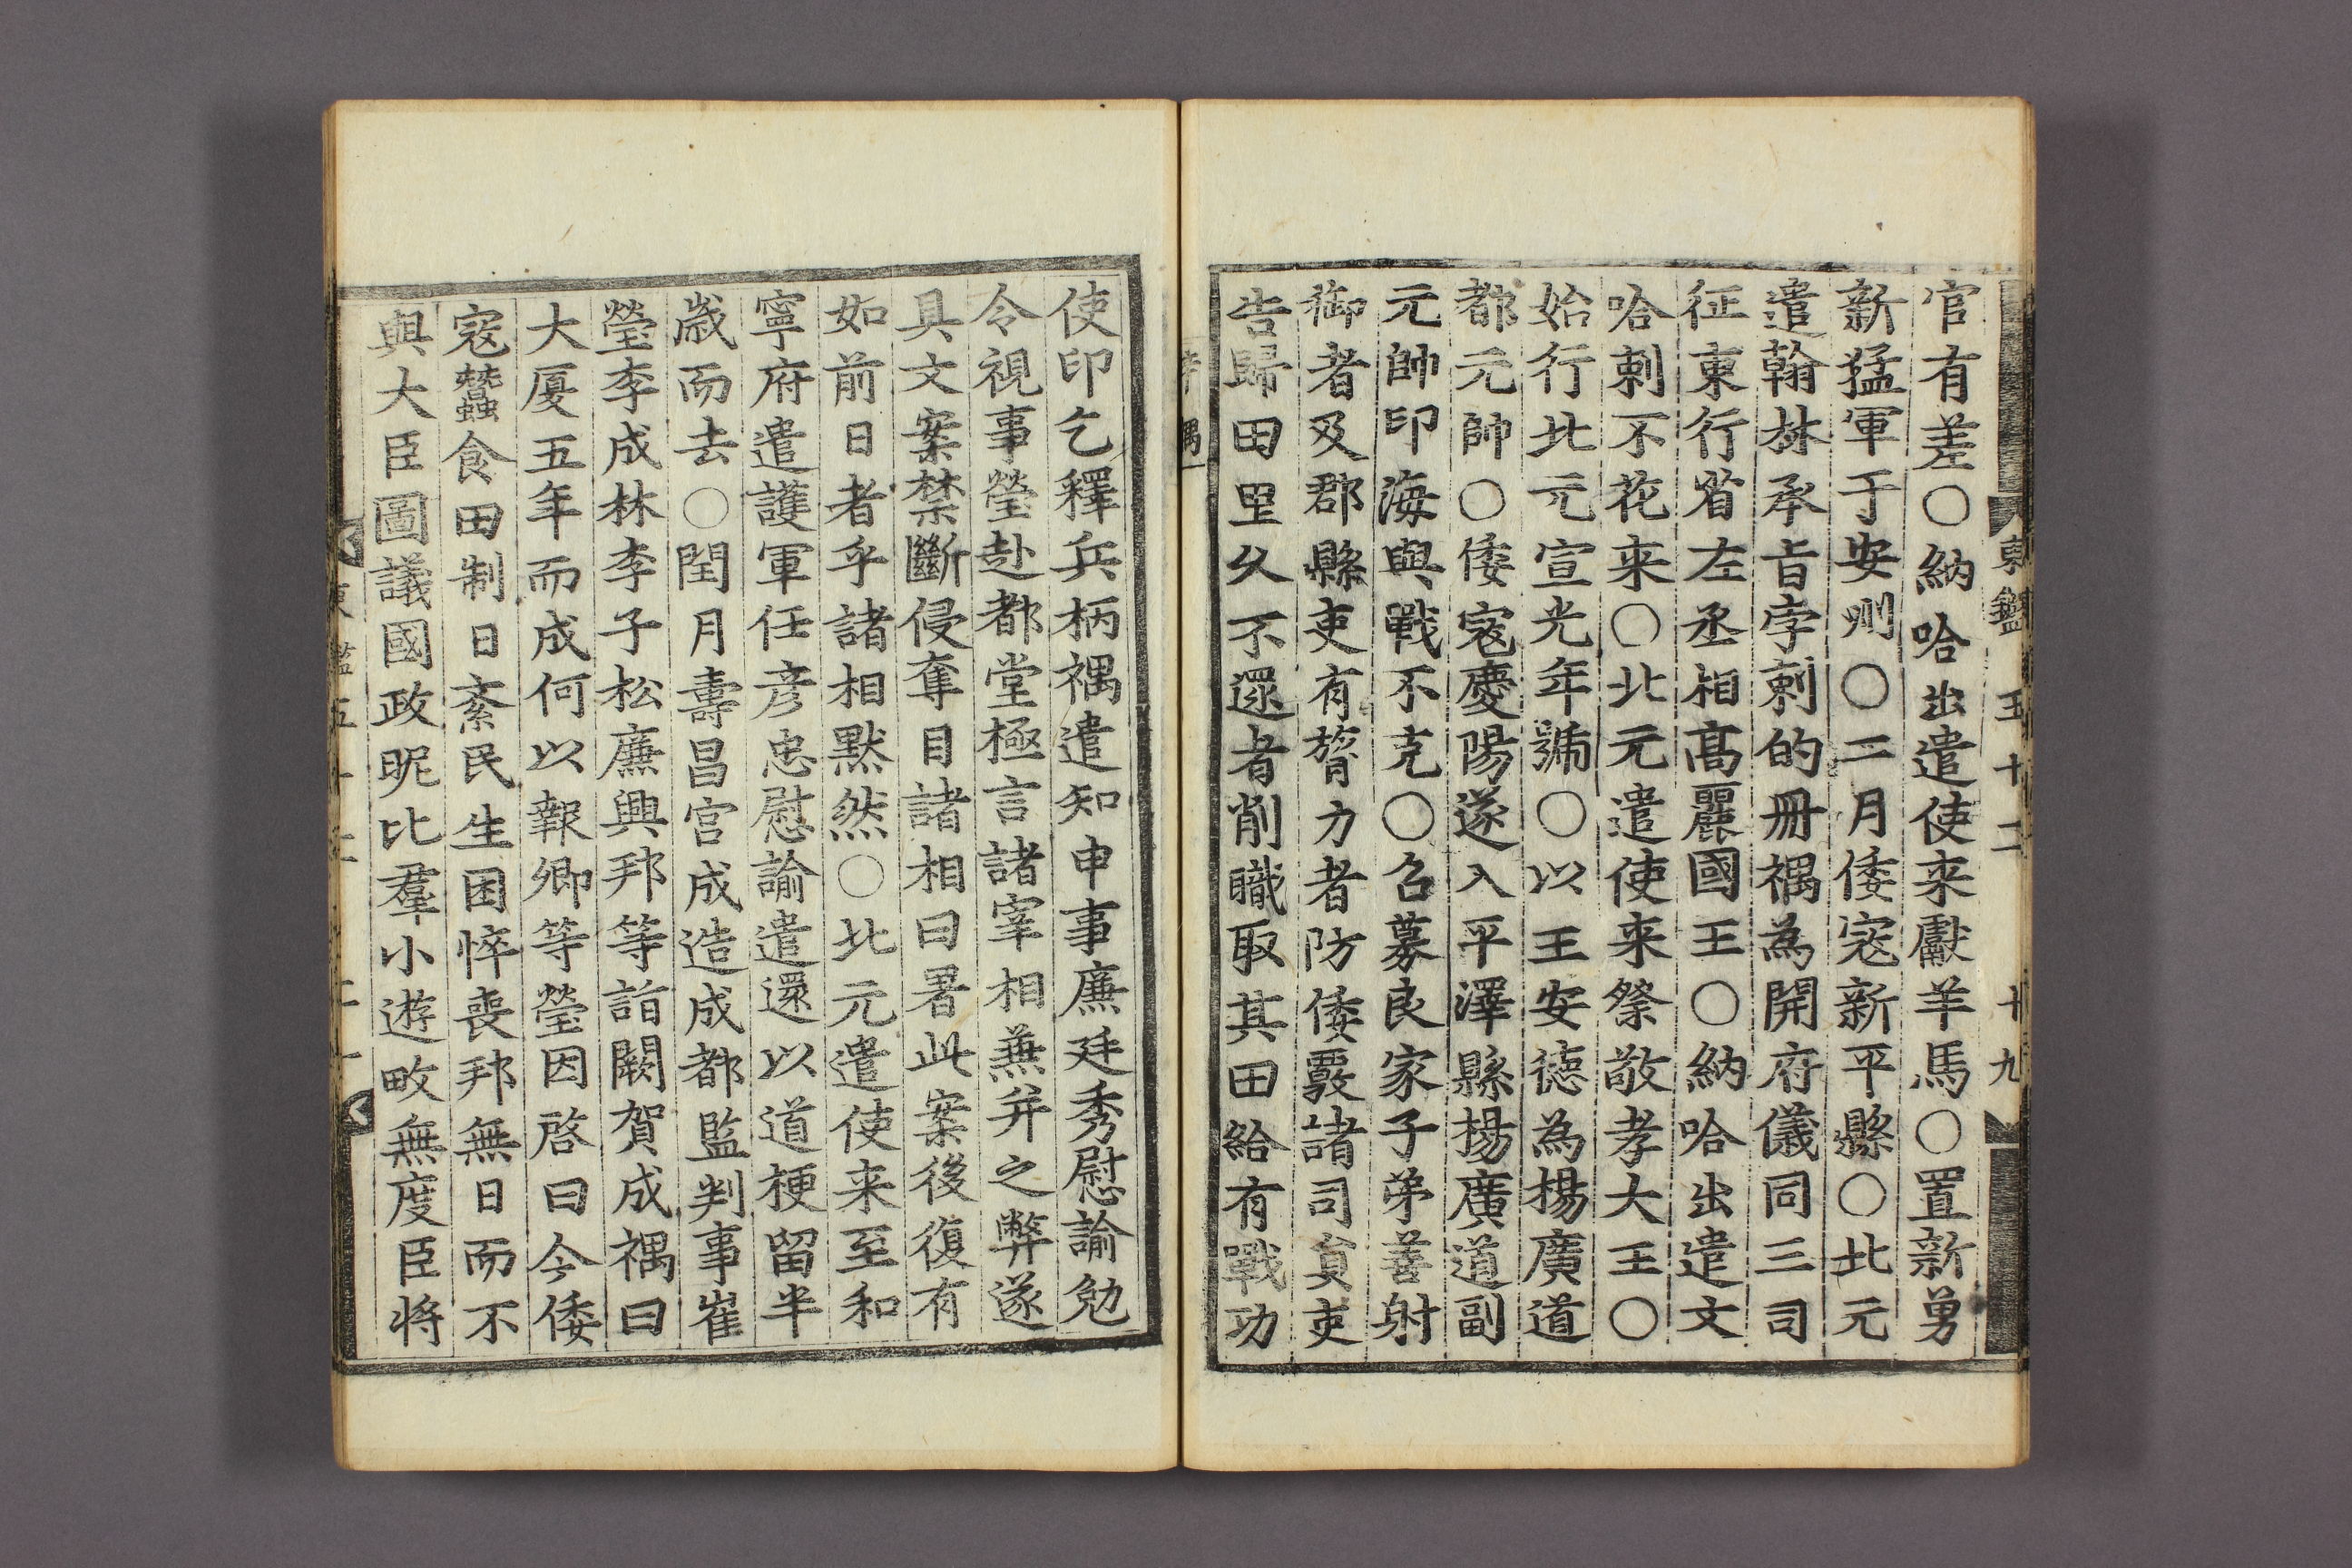 東鑑五十二 十九
官有差○納哈出遣使来獻羊馬○置新勇
新猛軍于安州○二月倭寇新平縣○北元
遣翰林承旨孛剌的冊禑為開府儀同三司
征東行省左丞相高麗國王○納哈出遣文
哈剌不花来○北元遣使来祭敬孝大王○
始行北元宣光年號○以王安德為楊廣道
都元帥○倭寇慶陽遂入平澤縣楊廣道副
元帥印海與戰不克○召募良家子弟善射
御者及郡縣吏有膂力者防倭覈諸司貟吏
告歸田里久不還者削職取其田給有戰功
辛禑一
使印乞釋兵柄禑遣知申事廉廷秀慰諭勉
令視事瑩赴都堂極言諸宰相兼并之弊遂
具文案禁斷侵奪目諸相曰署此案後復有
如前日者乎諸相黙然○北元遣使来至和
寧府遣護軍任彦忠慰諭遣還以道梗留半
歲而去○閏月壽昌宮成造成都監判事崔
瑩李成林李子松廉興邦等詣闕賀成禑曰
大厦五年而成何以報卿等瑩因啓曰今倭
寇蠶食田制日紊民生困悴喪邦無日而不
與大臣圖議國政昵比羣小遊畋無度臣將